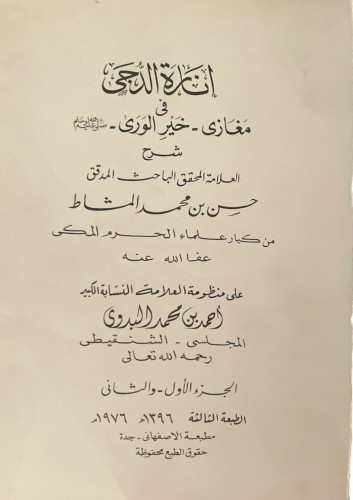 إنارة الدجى
فى
مغازى - خير الورى - صلى الله عليه وسلم
شرح
العلامة المحقق الباحث المدقق
حسن بن محمد المشاط
من كبار علماء الحرم المكى
عفا الله عنه
على منظومة العلامة النسابة الكبير
أحمد بن محمد البدوى
المجلسى - الشنقيطى
رحمه الله تعالى
الجزء الأول - والثانى
الطبعة الثالثة ١٣٩٦هـ ١٩٧٦م
مطبعة الاصفهانى - جدة
حقوق الطبع محفوظة